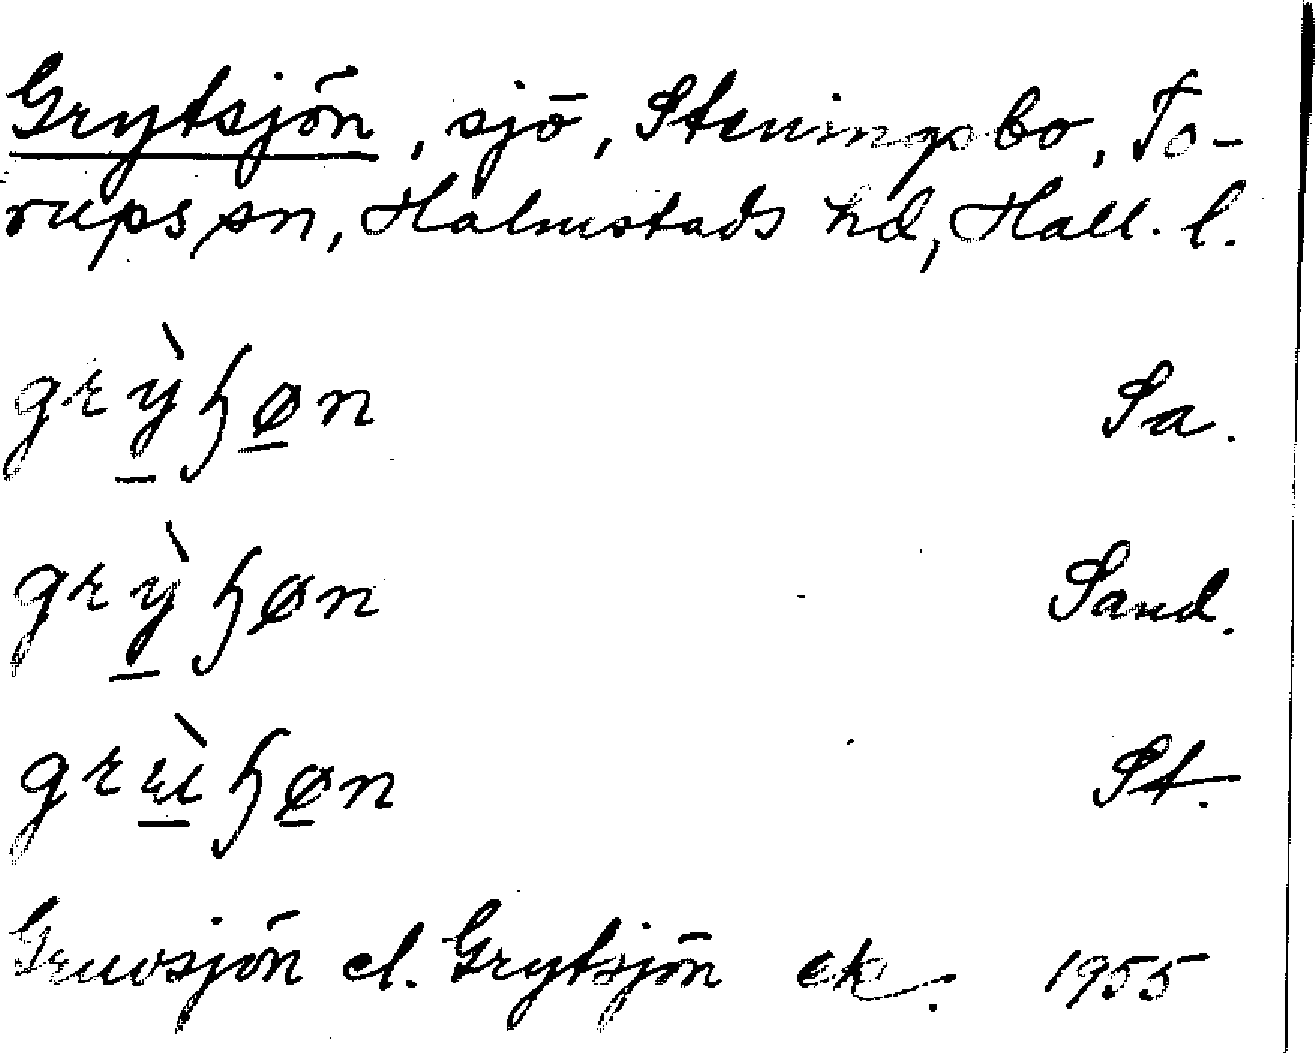 Grytsjön, sjö, Steningsbo, To-
rups sn, Halmstads hd, Hall. l.
grỳɧøn Sa.
grỳɧøn Sand.
grʉ̀ɧøn St.
Gruvsjön el. Grytsjön ek. 1955